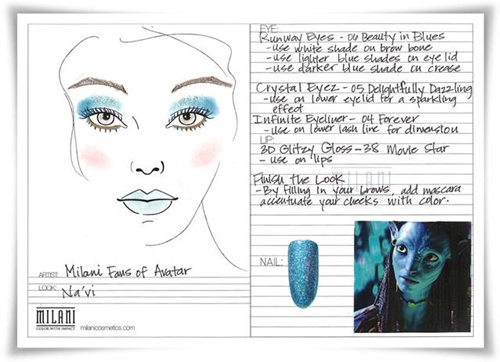 EYE:
Runway Eyes - 06 Beauty in Blues
-use white shade on brow bone
-use lighter blue shades on eyelid
-use darker blue shade on crease
Crystal Eyez - 05 Delightfully Dazzling
-use on lower eyelid for a sparkling
effect
Infinite Eyeliner - 04 Forever
-use on lower lash line for dimension
LIP:
3D Glitzy Gloss - 38 Movie Star
- use on lips
Finish the Look
-By filling in your brows, add mascara
accentuate your cheeks with color.
MILANI
NAIL:
ARTIST: Milani Fans of Avatar
LOOK: Na'vi
MILANI
COLOR WITH IMPACT
milanicosmetics.com